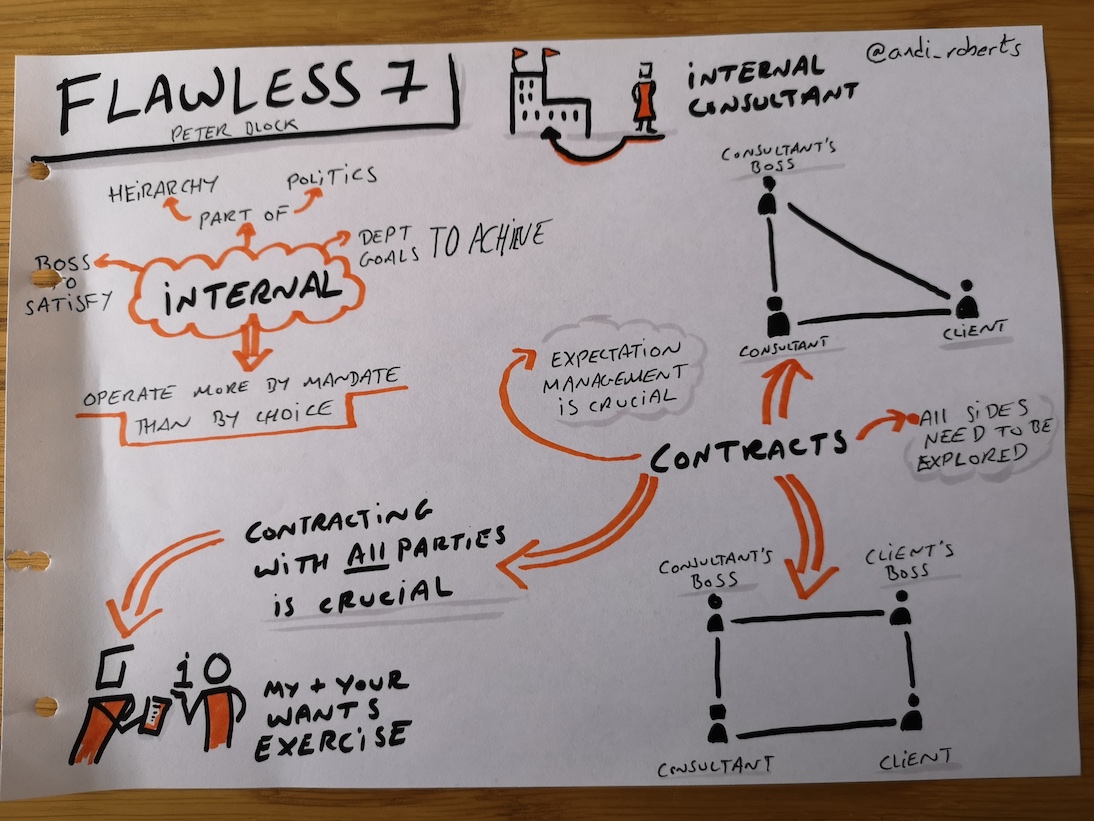 FLAWLESS 7
PETER BLOCK
INTERNAL
CONSULTANT
@andi_roberts
HEIRARCHY
POLITICS
PART OF
BOSS
TO
SATISFY
DEPT
GOALS TO ACHIVE
INTERNAL
OPERATE MORE BY MANDATE
THAN BY CHOICE
CONSULTANT'S
BOSS
CONSULTANT
CLIENT
EXPECTATION
MANAGEMENT
IS CRUCIAL
CONTRACTS
All SIDES
NEED TO BE
EXPLORED
CONTRACTING
WITH All PARTIES
IS CRUCIAL
MY + YOUR
WANTS
EXERCISE
CONSULTANT'S
BOSS
CLIENT'S
BOSS
CONSULTANT
CLIENT